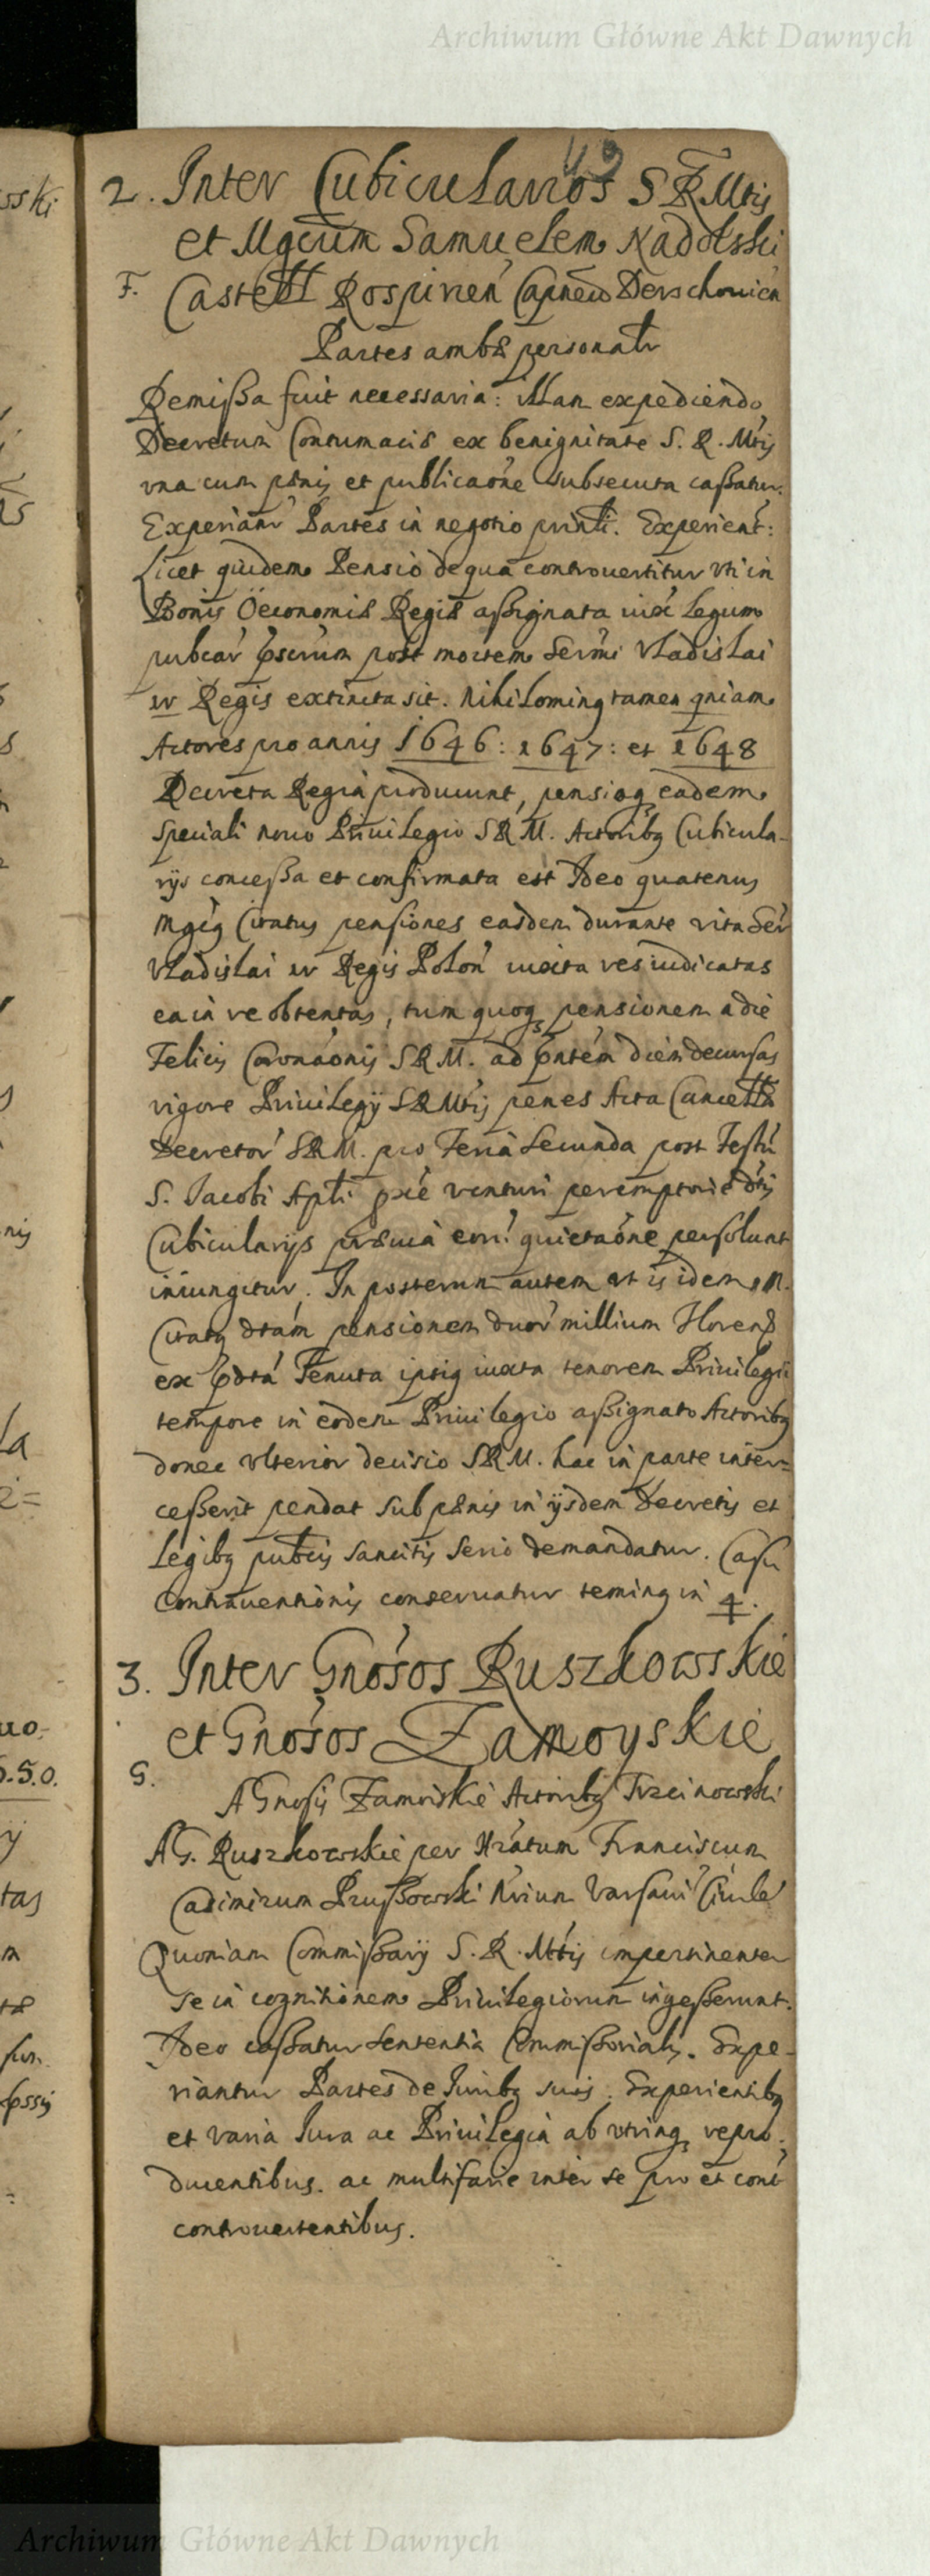 Archiwum Główne Akt Dawnych
49
2. Inter Cubicularios S R Mtis
et Mgcum Samuelem Nadolski
F. Castell Rospirien Capneu Derschouien
Partes ambæ personalr
Remißa fuit necessaria: illam expediendo
Decretum Contumaciæ ex benignitate S. R. Mtis
vna cum pænis et publicaõne subsecuta caßatur.
Experianr Partes in negotio prinli. Experient:
Licet quidem Pensio de qua controuertitur vti in
Bonis Oeconomiæ Regiæ aßignata iuxa legum
pubcar pscrum post mortem Sermi Vladislai
IV Regis extincta sit. Nihilominq tamen quiam
Actores pro annis 1646: 1647: et 1648
Decreta Regia producunt, pensioq eadem
speciali nouo Priuilegio SRM. Actoribq Cubicula-
rijs conceßa et confirmata est Ideo quatenus
Mgcq Citatus pensiones easdem durante vita Ser
Vladislai IV Regis Polon iuxta res iudicatas
ea in re obtentas, tum quoq pensionem a die
Felicis Coronaonis SRM. ad pntem diem decursas
vigore Priuilegij SRMtis penes Acta Cancell
Decretor SRM. pro Feria Secunda post Festu
S. Jacobi Apli pxe venturi peremptorie dtis
Cubicularijs præuia eorr quietaõne persoluat
iniungitur. In posterum autem vt is idem M.
Citatq dtam pensionem duor millium Floren
ex pdta Tenuta ipsiq iuxta tenorem Priuilegii
tempore in eodem Priuilegio aßignato Actoribq
donec vlterior decisio SRM. hac in parte inter=
ceßerit pendat sub pænis in ijsdem Decretis et
Legibq publicis sancitis serio demandatur. Casu
Contrauentionis conseruatur terminq in 4.
3. Inter Gnosos Ruszkowskie
et Gnosos Zamoyskie
G.
A Gnosis Zamoiskie Actoribq Trzcinowski
A G. Ruszkowskie per Hratum Franciscum
Casimirum Prußowski Nrium Varsaui Ciuile
Quoniam Commißarij S. R. Mtis impertinenter
se in cognitionem Priuilegiorum ingeßerunt.
Ideo caßatur sententia Commißorialis. Expe-
riantur Partes de Juribq suis. Experientibq
et varia Jura ac Priuilegia ab vtrinq repro-
ducentibus. ac multifarie inter se pro et cont
controuertentibus.
Archiwum Główne Akt Dawnych